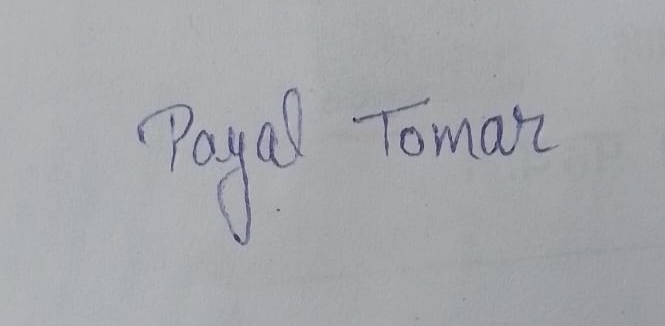 Payal Tomar